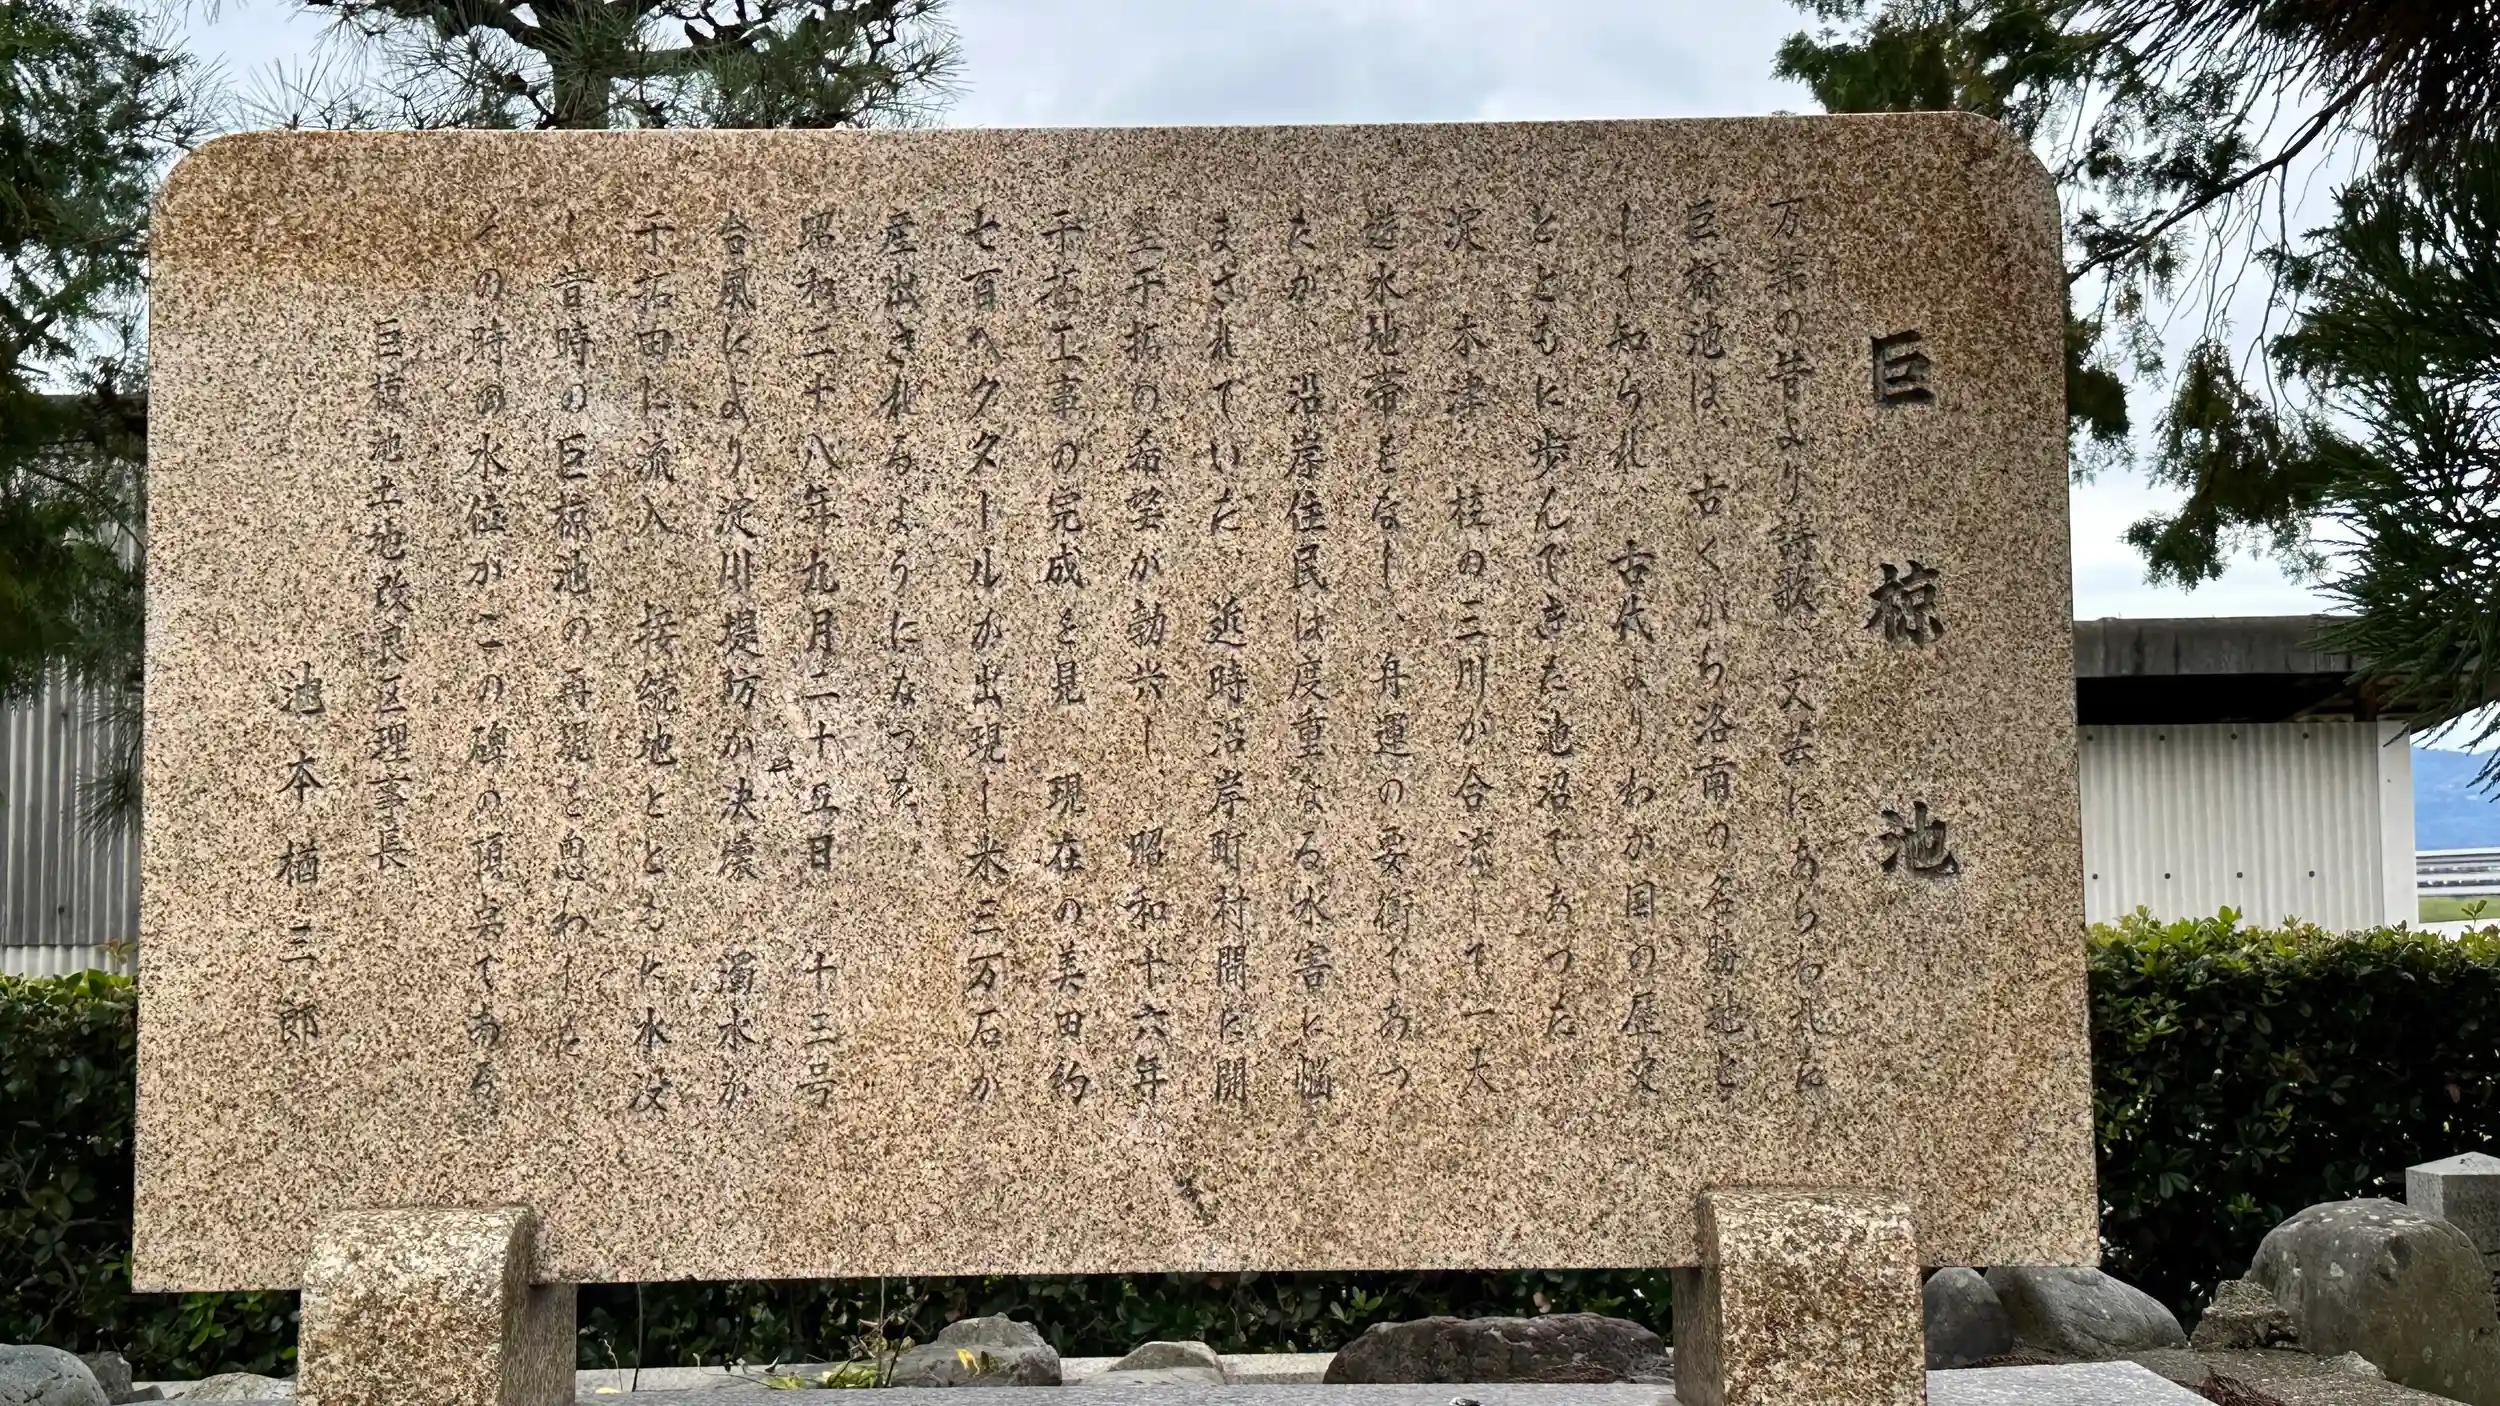 巨椋池
万葉の昔より詩歌、文芸にあらわれた
巨椋池は、古くから洛南の名勝地と
して知られ、古代よりわが国の歴史
とともに歩んできた池沼であった
淀、木津、桂の三川が合流して一大
遊水地帯をなし、舟運の要衝であっ
たが、沿岸住民は度重なる水害に悩
まされていた、近時沿岸町村間に開
墾干拓の希望が勃興し、昭和十六年
干拓工事の完成を見、現在の美田約
七百ヘクタールが出現し米三万石が
産出されるようになった、
昭和二十八年九月二十五日、十三号
台風により淀川堤防が決壊、濁水が
干拓田に流入、接続地とともに水没
し昔時の巨椋池の再現を思わした、
その時の水位がこの碑の頂きである
巨椋池土地改良区理事長
池本楢三郎